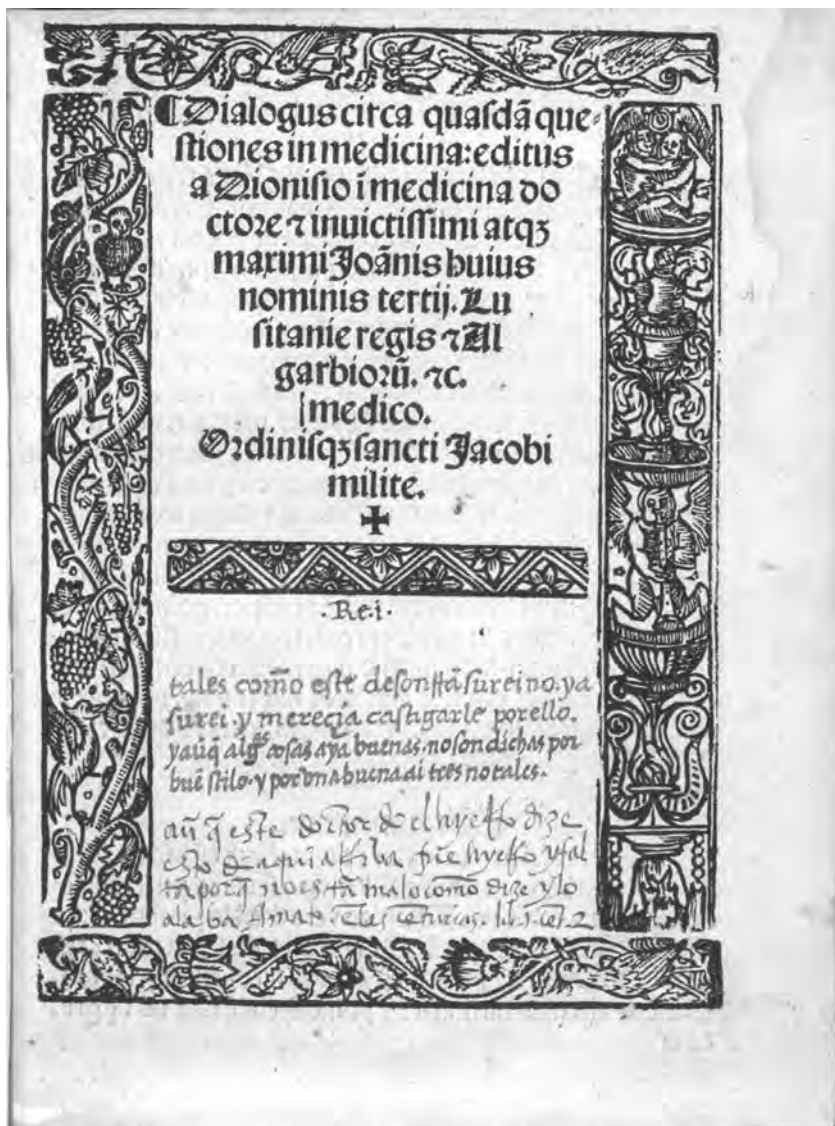 ¶Dialogus circa quasdā que-
stiones in medicina: editus
a Dionisio i medicina do
ctore ⁊ inuictissimi atqꝫ
maximi Joānis huius
nominis tertij. Lu
sitanie regis ⁊ Al
garbioꝛū. ⁊c.
medico.
Oꝛdinisqꝫ sancti Jacobi
milite.
✠
.Re.i.
tales como este desonrrā su reino. ya
su rei. y merecia castigarle por ello.
yaūq̄ algas cosas aya buenas. no son dichas por
buē stilo. y por una buena ai tres no tales.
aū q̄ este doctor
esto de aqui arriba fue
porq̄ no esta malo como dize y lo
alaba Amat. lib. 1. 2